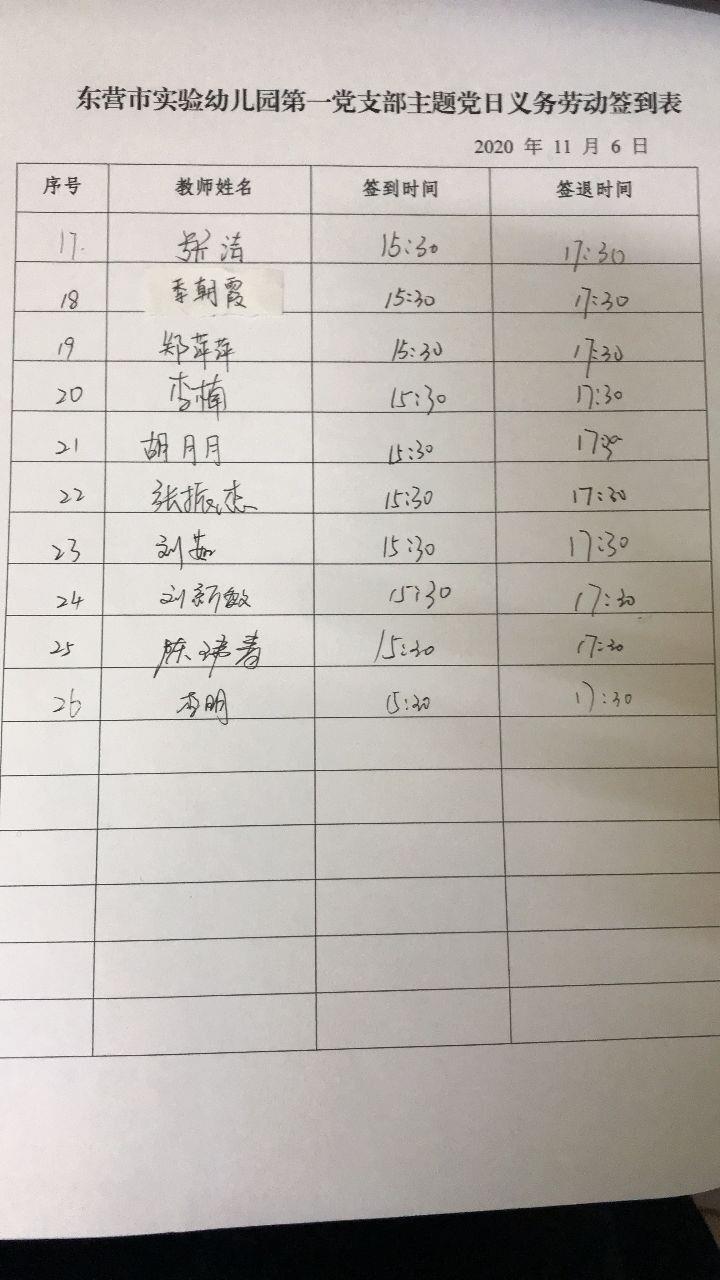 东营市实验幼儿园第一党支部主题党日义务劳动签到表
2020 年 11 月 6 日
序号 教师姓名 签到时间 签退时间
17. 张洁 15:30 17:30
18 季朝霞 15:30 17:30
19 郑萍萍 15:30 17:30
20 李楠 15:30 17:30
21 胡月月 15:30 17:30
22 张振杰 15:30 17:30
23 刘茹 15:30 17:30
24 刘新敏 15:30 17:30
25 15:30 17:30
26 李明 15:30 17:30